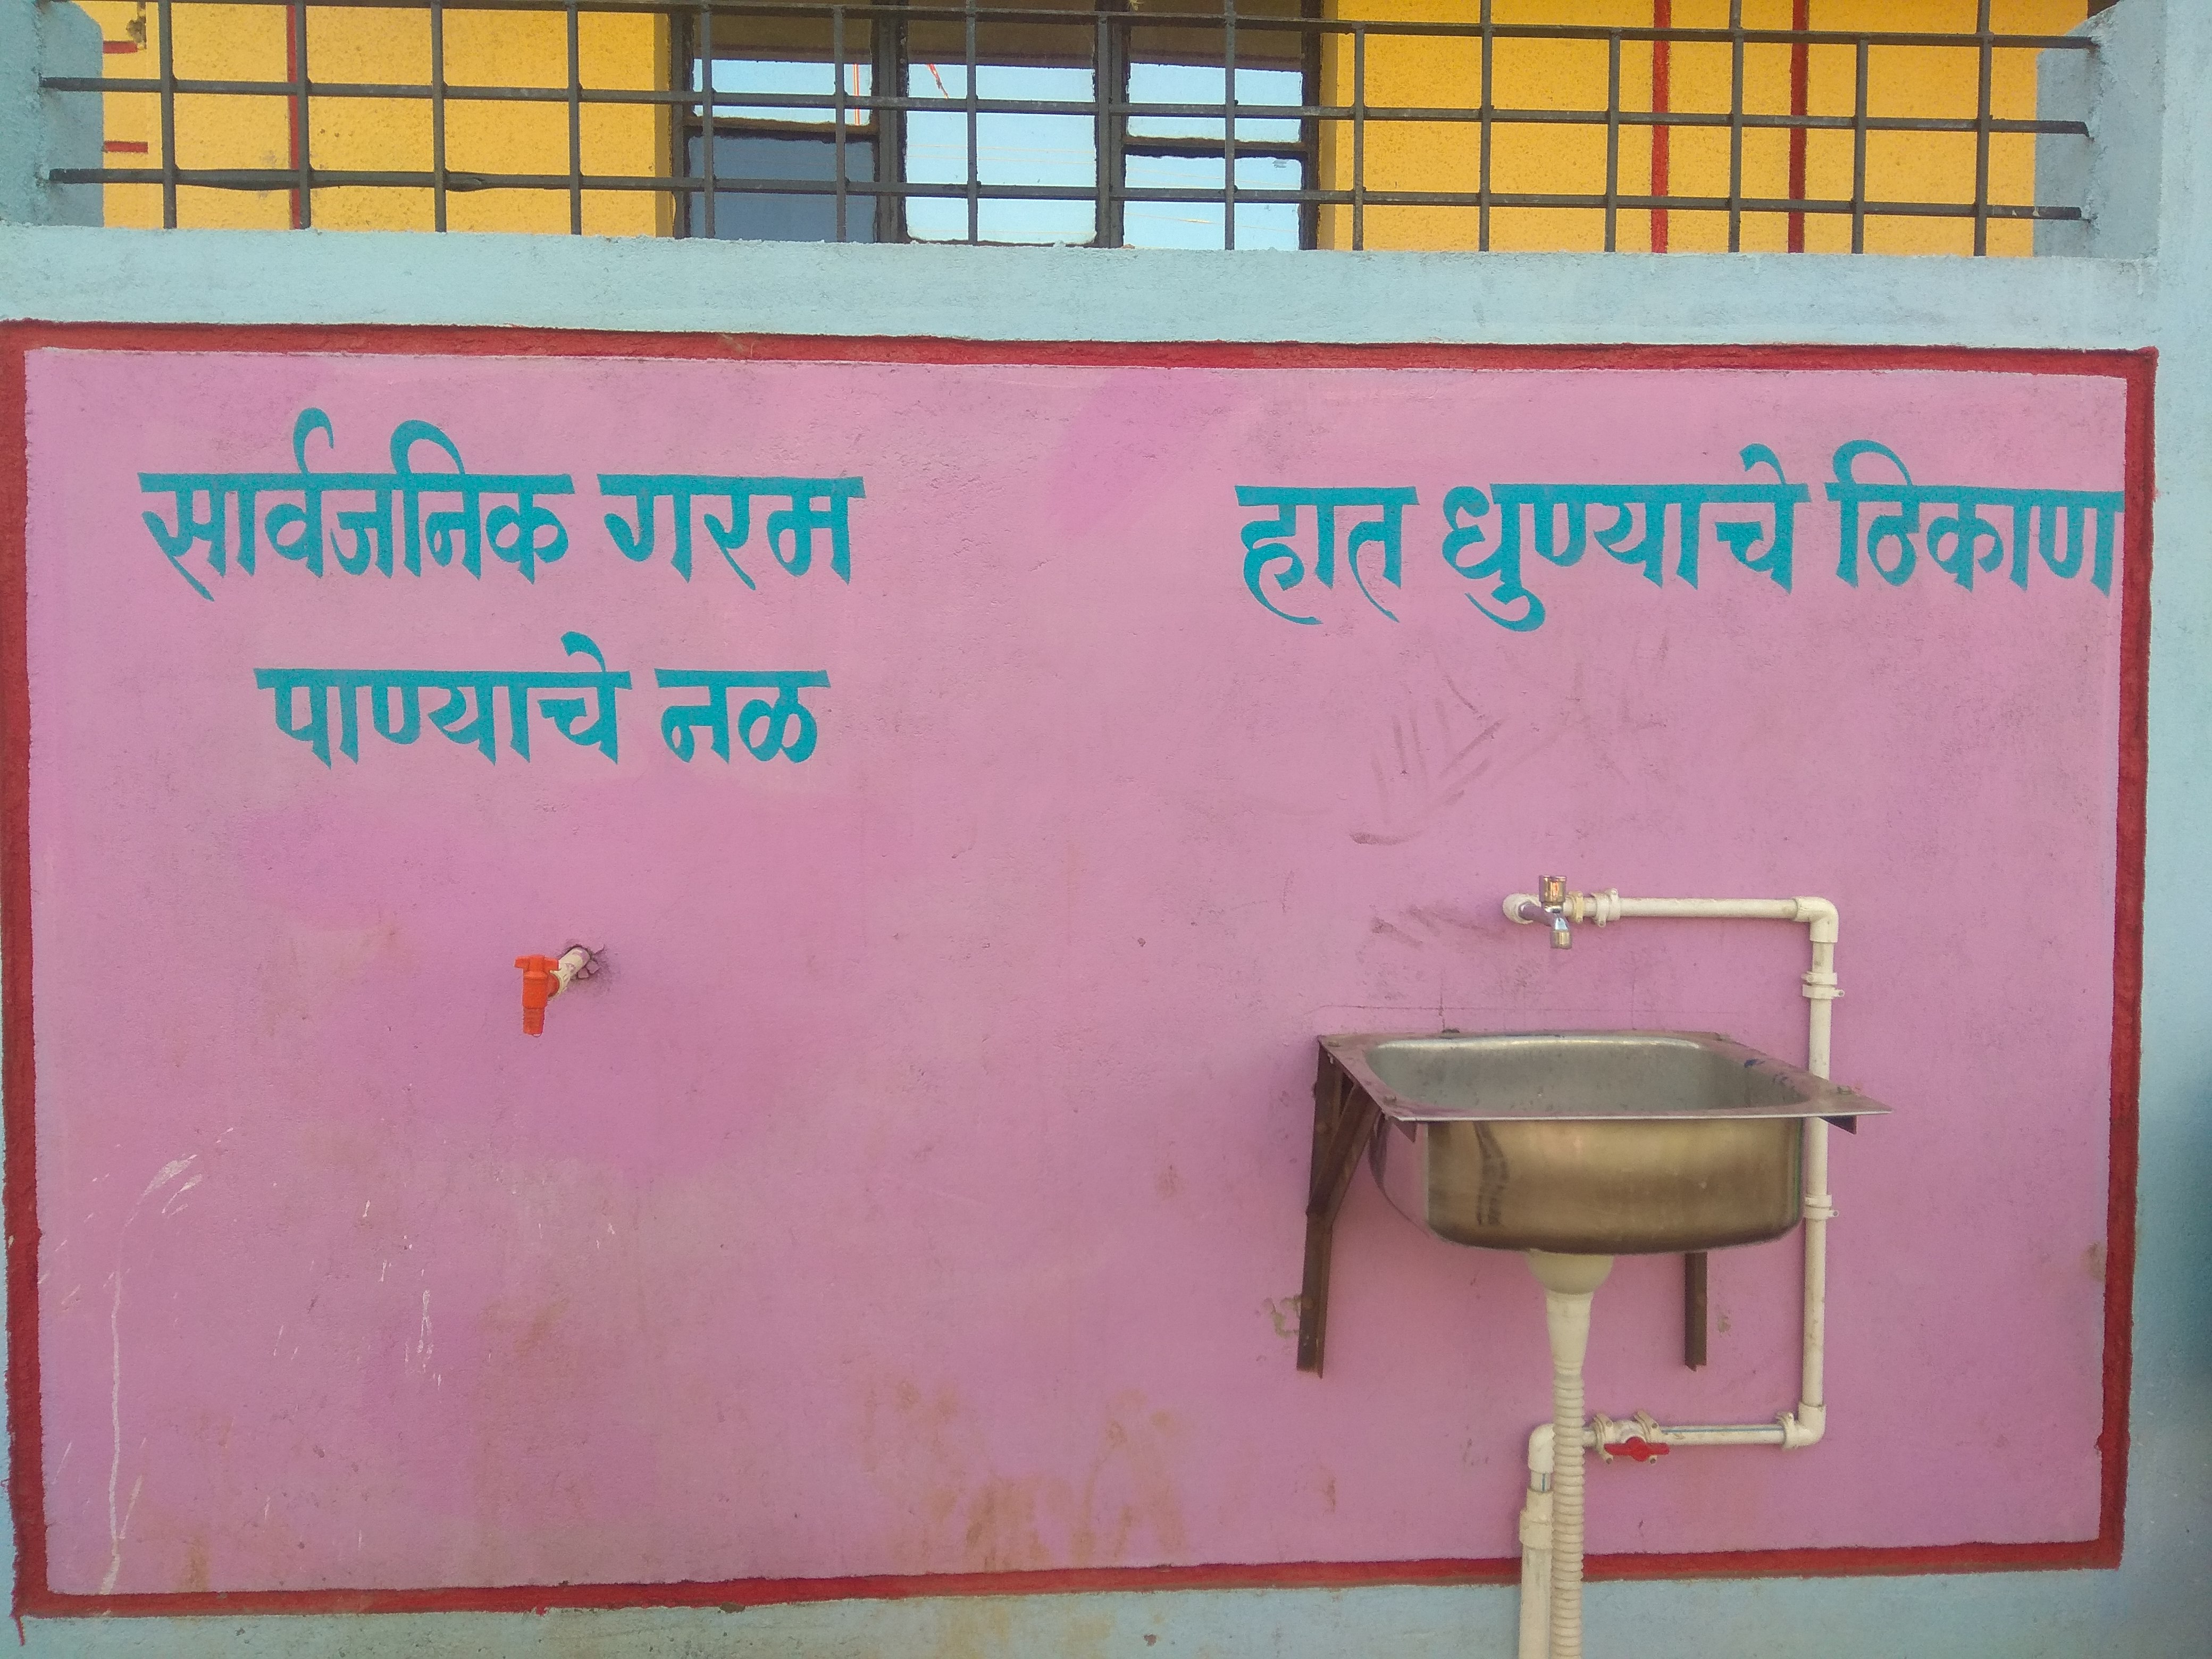 सार्वजनिक गरम
पाण्याचे नळ
हात धुण्याचे ठिकाण